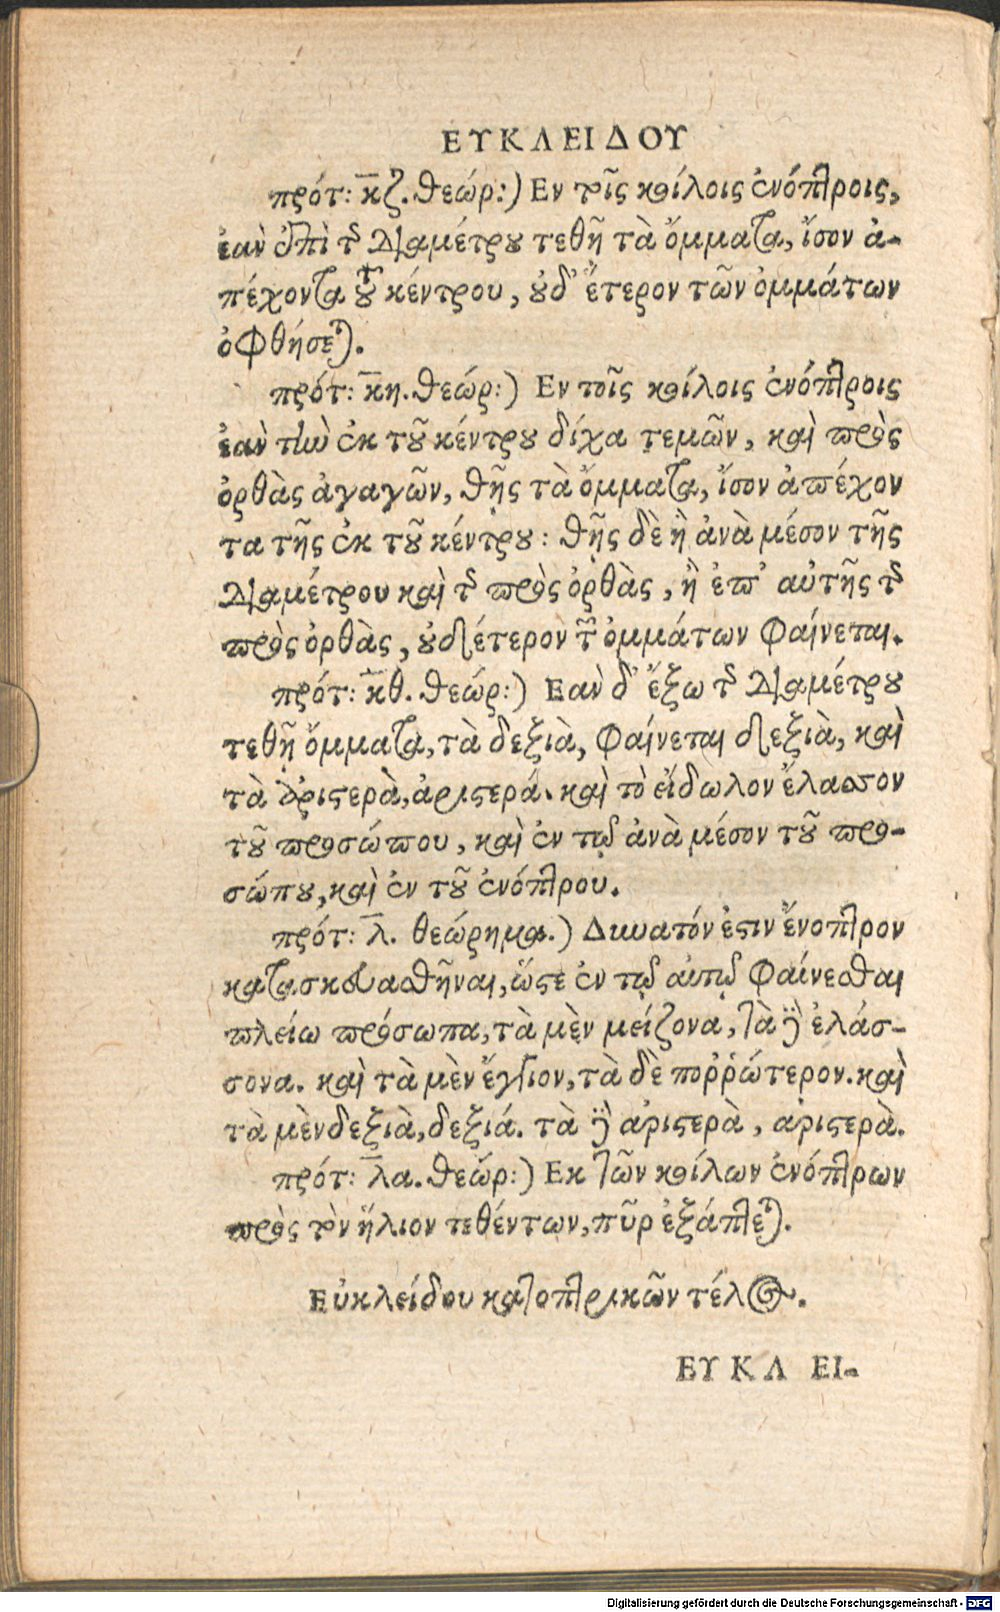 ΕΥΚΛΕΙΔΟΥ
πρότ: κζ. θεώρ:) Εν τοῖς κοίλοις ἐνόπτροις,
ἐαν ἐπὶ τῆς διαμέτρου τεθῇ τὰ ὄμματα, ἴσον ἀ-
πέχοντα τοῦ κέντρου, οὐδ' ἕτερον τῶν ὀμμάτων
ὀφθήσεται.
πρότ: κη. θεώρ:) Εν τοῖς κοίλοις ἐνόπτροις
ἐαν τὴν ἐκ τοῦ κέντρου δίχα τεμῶν, καὶ πρὸς
ὀρθὰς ἀγαγῶν, θῇς τὰ ὄμματα, ἴσον ἀπέχον
τα τῆς ἐκ τοῦ κέντρου: θῇς δὲ ἢ ἀνὰ μέσον τῆς
διαμέτρου καὶ τῆς πρὸς ὀρθὰς, ἢ ἐπ' αὐτῆς τῆς
πρὸς ὀρθὰς, οὐδέτερον τῶν ὀμμάτων φαίνεται.
πρότ: κθ. θεώρ:) Εαν δ' ἔξω τῆς διαμέτρου
τεθῇ ὄμματα, τὰ δεξιὰ, φαίνεται δεξιὰ, καὶ
τὰ ἀριστερὰ, ἀριστερά. καὶ τὸ εἴδωλον ἔλασσον
τοῦ προσώπου, καὶ ἐν τῷ ἀνὰ μέσον τοῦ προ-
σώπου, καὶ ἐν τοῦ ἐνόπτρου.
πρότ: λ. θεώρημα.) Δυνατόν ἐστιν ἔνοπτρον
κατασκευασθῆναι, ὥστε ἐν τῷ αὐτῷ φαίνεσθαι
πλείω πρόσωπα, τὰ μὲν μείζονα, τὰ δὲ ἐλάσ-
σονα. καὶ τὰ μὲν ἔγγιον, τὰ δὲ πορῤώτερον. καὶ
τὰ μὲν δεξιὰ, δεξιά. τὰ δὲ ἀριστερὰ, αριστερὰ.
πρότ: λα. θεώρ:) Εκ τῶν κοίλων ἐνόπτρων
πρὸς τὸν ἥλιον τεθέντων, πῦρ ἐξάπτεται.
Εὐκλείδου κατοπτρικῶν τέλος.
ΕΥΚΛ ΕΙ-
Digitalisierung gefördert durch die Deutsche Forschungsgemeinschaft - DFG